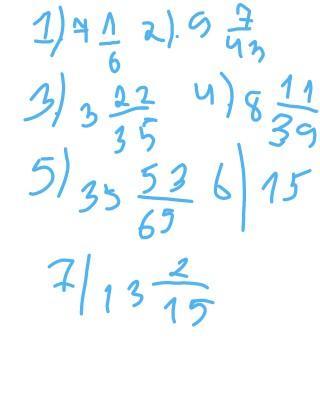 1) 7 1/6 2). 9 7/43
3.) 3 22/35 4) 8 11/39
5) 35 53/65 6) 15
7) 13 2/15